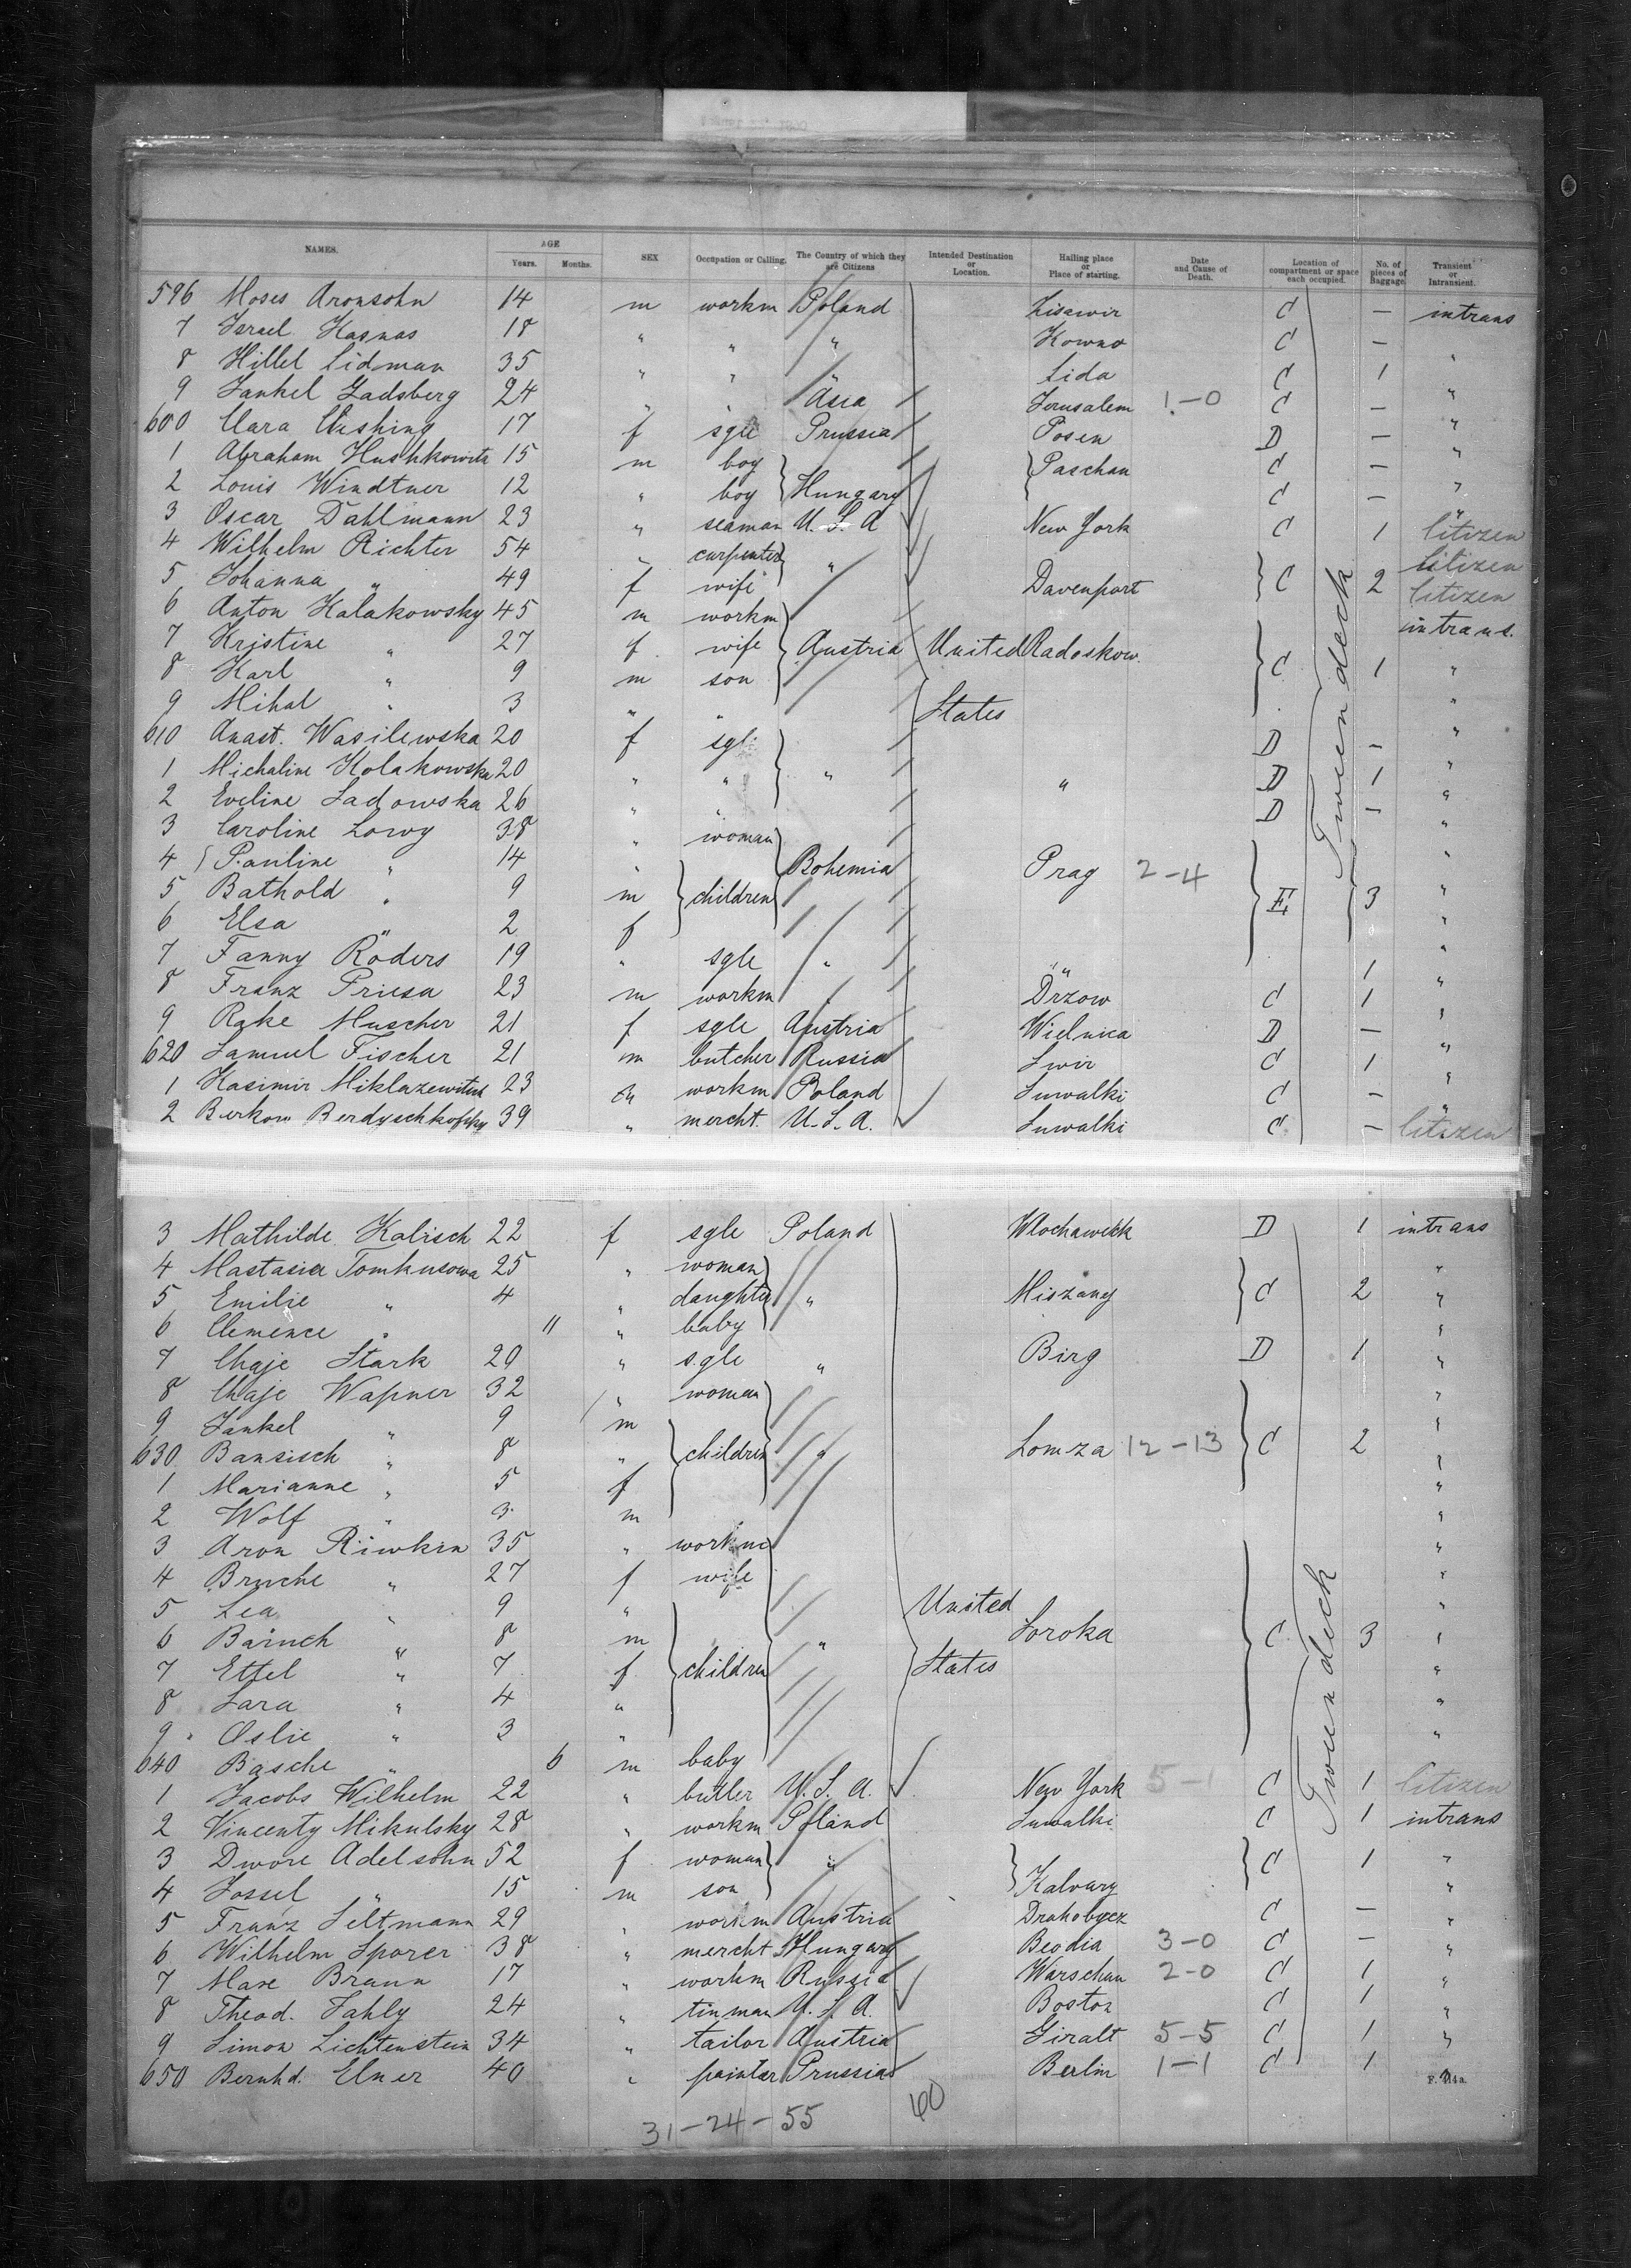 NAMES. AGE Years. Months. SEX Occupation or Calling. The Country of which they are Citizens Intended Destination or Location. Hailing place or Place of starting. Date and Cause of Death. Location of compartment or space each occupied. No. of pieces of Baggage. Transient or Intransient.
596 Moses Aronsohn 14 m workm Poland Lisawir C — intrans
7 Israel Kasnas 18 " " " Kowno C —
8 Hillel Lidman 35 " " " Lida C 1 "
9 Jankel Zadsberg 24 " " Asia Jerusalem 1-0 C — "
600 Clara 17 f sgle Prussia Posen D — "
1 Abraham Hushkowitz 15 m boy Paschau C — "
2 Louis Windtner 12 " boy Hungary C — "
3 Oscar Dahlmann 23 " seaman U.S.A New York C 1 Citizen
4 Wilhelm Richter 54 " carpenter " Citizen
5 Johanna " 49 f wife Davenport C 2 Citizen
6 Anton Kalakowsky 45 m workm intrans.
7 Kristine " 27 f wife Austria United Radoskow. C 1 "
8 Karl " 9 m son "
9 Mihal " 3 " " States "
610 Anast. Wasilewska 20 f sgl. D — "
1 Michaline Kolakowska 20 " " " " D 1 "
2 Eveline Sadowska 26 " " D — "
3 Caroline Lowy 38 " woman "
4 Pauline " 14 " Bohemia Prag 2-4 "
5 Bathold " 9 m children E 3 "
6 Elsa " 2 f "
7 Fanny Röders 19 " sgle " " 1 "
8 Franz Priesa 23 m workm " Drzow C 1 "
9 Rake Muscher 21 f sgle Austria Wielnica D — "
620 Samuel Fischer 21 m butcher Russia Swir C 1 "
1 Kasimir 23 m workm Poland Suwalki C — "
2 Berkom 39 " mercht. U.S.A. Suwalki C — Citizen
Tween deck
3 Mathilde Kalisch 22 f sgle Poland Wlochawekk D 1 intrans
4 Mastasia Tomkusowa 25 " woman "
5 Emilie " 4 " daughter " Miszany C 2 "
6 Clemence " 11 " baby "
7 Chaje Stark 20 " sgle " Birg D 1 "
8 Chaje Wapner 32 " woman "
9 Jankel " 9 m "
630 Bansisch " 8 " children " Lomza 12-13 C 2 "
1 Marianne " 5 f "
2 Wolf " 3 m "
3 Aron Riwkin 35 " workm "
4 Bruche " 27 f wife "
5 Lea " 9 " United "
6 Baruch " 8 m " Soroka C 3 "
7 Ettel " 7 f children States "
8 Sara " 4 " "
9 Oslie " 3 " "
640 Basche " 6 m baby
1 Jacobs Wilhelm 22 " butler U.S.A. New York 5-1 C 1 Citizen
2 Vincenty Mikulsky 28 " workm Poland Suwalki C 1 intrans
3 Dwore Adelsohn 52 f woman " C 1 "
4 Jossel " 15 m son Kalvary "
5 Franz Seltmann 29 " workm Austria Drohobycz C — "
6 Wilhelm Sporer 38 " mercht Hungary Beodia 3-0 C — "
7 Max Braun 17 " workm Russia Warschau 2-0 C 1 "
8 Theod. Fahly 24 " tinman U.S.A. Boston C 1 "
9 Simon Lichtenstein 34 " tailor Austria Giralt 5-5 C 1 "
650 Bernhd. Elner 40 " painter Prussia Berlin 1-1 C 1 "
Tween deck
31-24-55 60